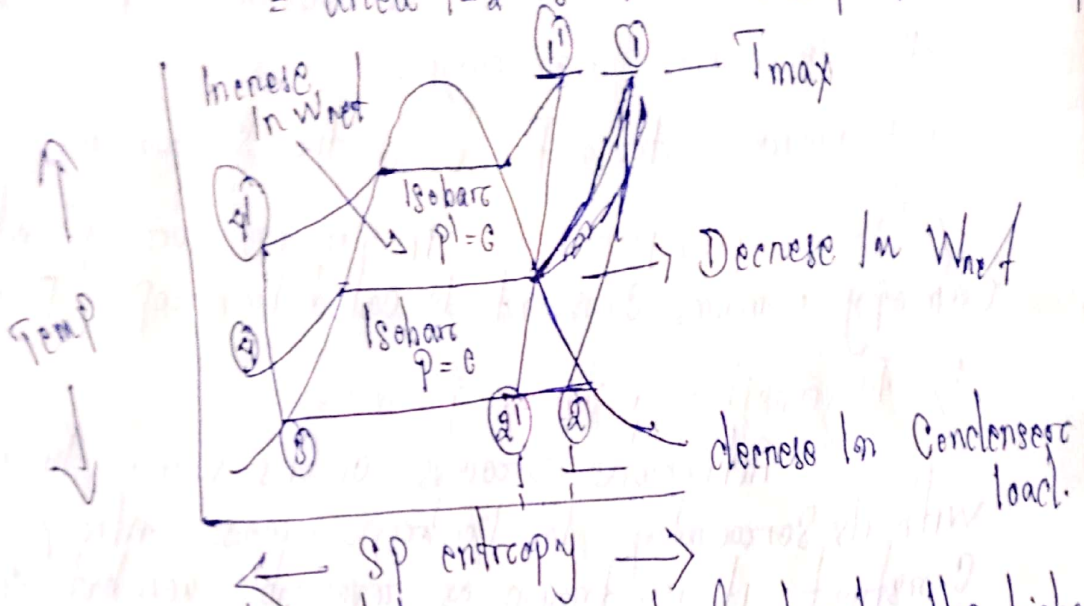 = area 1-2
1' 1 Tmax
Increse
In Wnet
4'
Isobar
p' = C
Decrese In Wnet
Temp
4
Isobar
p = C
3
2' 2
decrese In Condenser
load.
Sp entropy